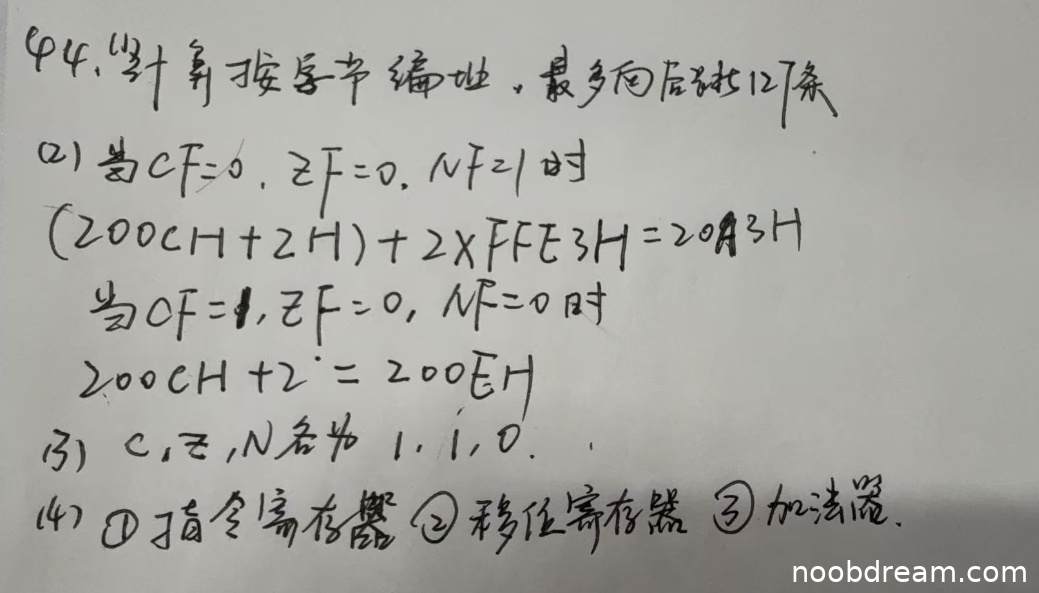 44.(1)当计算按字节编址，最多向后跳127条
(2) 当CF=0，ZF=0，NF=1时
(200CH+2H)+2×FFE3H=20A3H
当CF=1，ZF=0，NF=0时
200CH+2=200EH
(3) C，Z，N各为 1，1，0.
(4) ①指令寄存器 ②移位寄存器 ③加法器.
noobdream.com